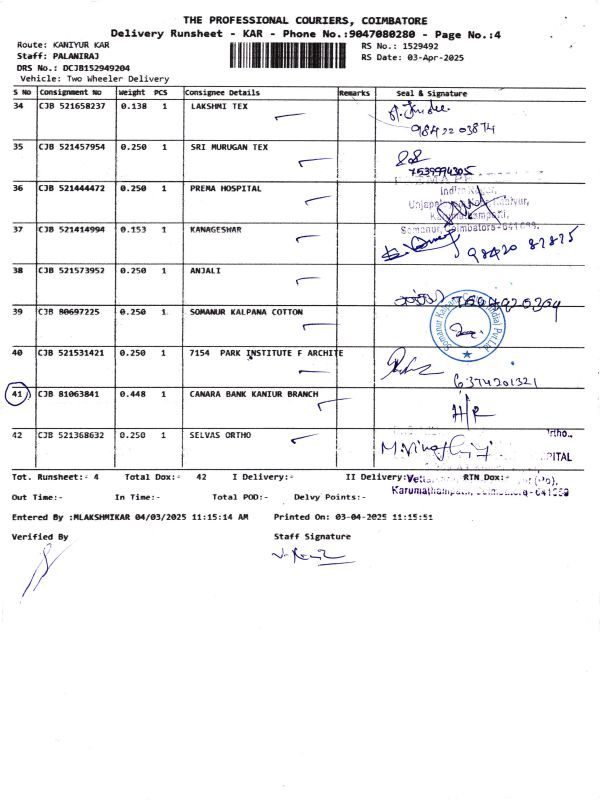 THE PROFESSIONAL COURIERS, COIMBATORE
Delivery Runsheet - KAR - Phone No.:9047080280 - Page No.:4
Route: KANIYUR KAR
RS No.: 1529492
Staff: PALANIRAJ
RS Date: 03-Apr-2025
DRS No.: DCJB152949204
Vehicle: Two Wheeler Delivery
S No Consignment No Weight PCS Consignee Details Remarks Seal & Signature
34 CJB 521658237 0.138 1 LAKSHMI TEX
98422 03874
35 CJB 521457954 0.250 1 SRI MURUGAN TEX
7539994305
36 CJB 521444472 0.250 1 PREMA HOSPITAL
Somanur, Coimbatore-641
37 CJB 521414994 0.153 1 KANAGESHAR
98420 87875
38 CJB 521573952 0.250 1 ANJALI
39 CJB 80697225 0.250 1 SOMANUR KALPANA COTTON
Somanur Kalpana Cotton (India) Pvt Ltd
40 CJB 521531421 0.250 1 7154 PARK INSTITUTE F ARCHITE
6374201321
41 CJB 81063841 0.448 1 CANARA BANK KANIUR BRANCH
42 CJB 521368632 0.250 1 SELVAS ORTHO
Tot. Runsheet:- 4 Total Dox:- 42 I Delivery:- II Delivery: RTN Dox:-
Out Time:- In Time:- Total POD:- Delvy Points:-
Entered By :MLAKSHMIKAR 04/03/2025 11:15:14 AM Printed On: 03-04-2025 11:15:51
Verified By Staff Signature